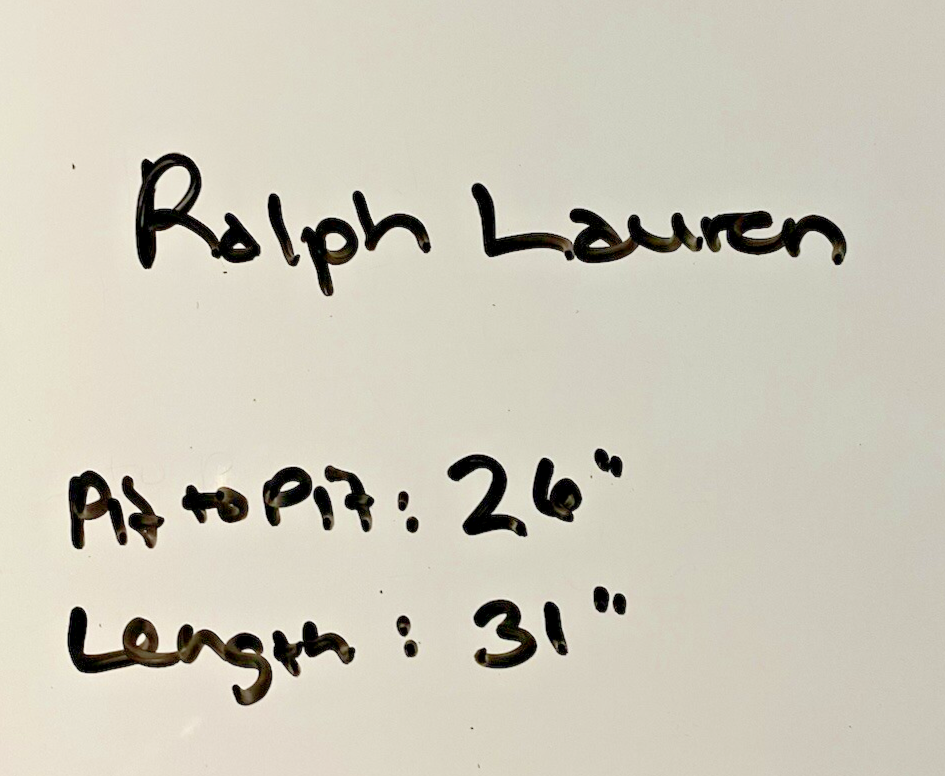 Ralph Lauren
Pit to Pit: 26"
Length: 31"